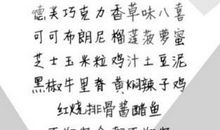 德芙巧克力香草味八喜
可可布朗尼榴莲菠萝蜜
芝士玉米粒鸡汁土豆泥
黑椒牛里脊黄焖辣子鸡
红烧排骨酱醋鱼